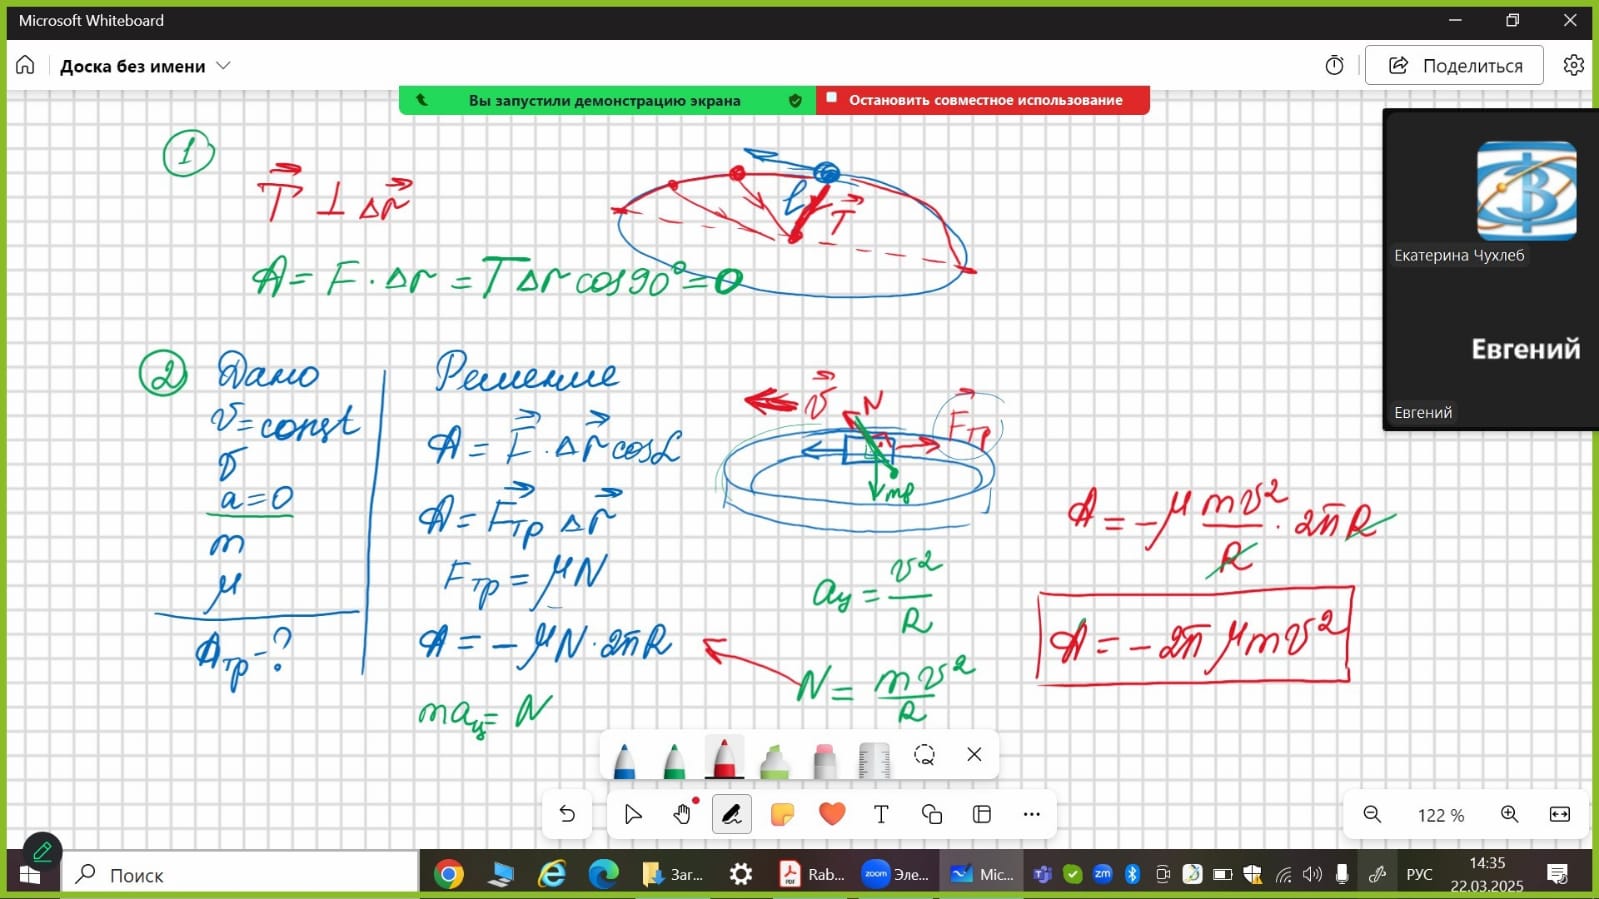 Microsoft Whiteboard
Доска без имени
Поделиться
Вы запустили демонстрацию экрана
Остановить совместное использование
1
T ⊥ Δr
A = F · Δr = TΔr cos90° = 0
ℓ
T
Екатерина Чухлеб
Евгений
Евгений
2
Дано
v = const
v
a = 0
m
μ
Aтр - ?
Решение
A = F · Δr cosα
A = Fтр Δr
Fтр = μN
A = -μN · 2πR
maц = N
v
N
Fтр
mg
aц = v²/R
N = mv²/R
A = -μ mv²/R · 2πR
A = -2π μmv²
122 %
Поиск
Заг...
Rab...
Эле...
Mic...
РУС
14:35
22.03.2025